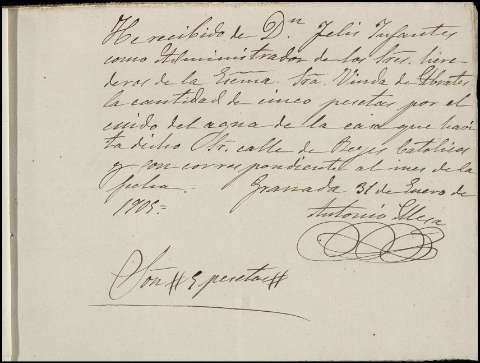 He recibido de Dn Felix Infantes
como Administrador de los Sres. here-
deros de la Excma. Sra. Viuda de
la cantidad de cinco pesetas por el
cuido del agua de la casa que habi-
ta dicho Sr. calle de Reyes Catolicos
y son correspondiente al mes de la
fecha. Granada 31 de Enero de
1905=
Antonio
Son # 5 pesetas #